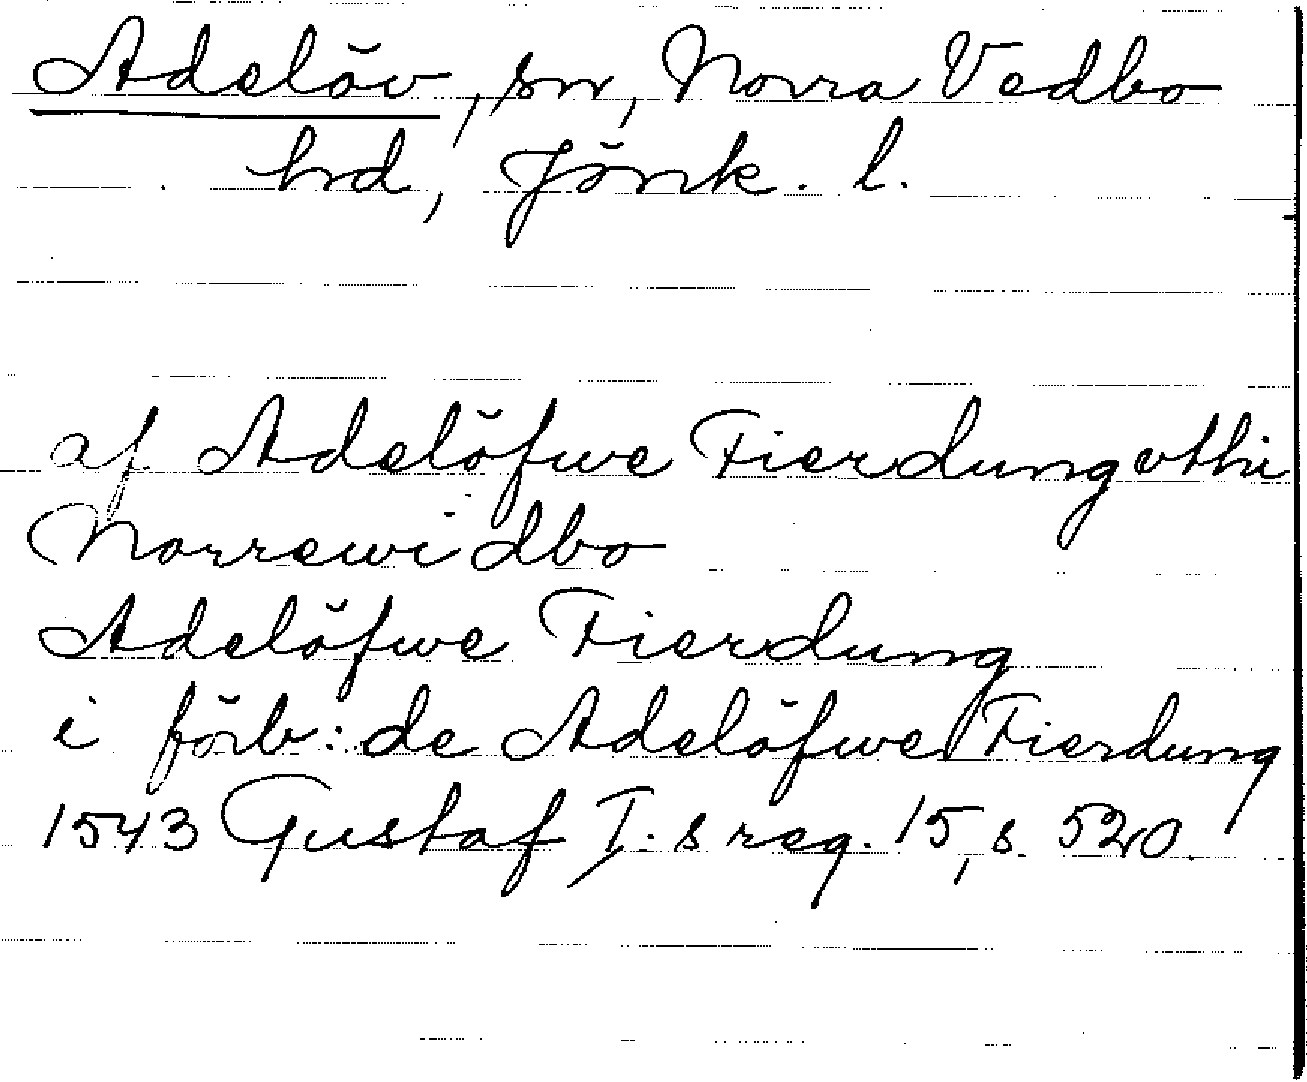 Adelöv, sn, Norra Vedbo
hrd, Jönk. l.
af Adelöfwe Fierdung vthi
Norrewidbo
Adelöfwe Fierdung
i förb: de Adelöfwe Fierdung
1543 Gustaf I:s reg. 15, s. 520.